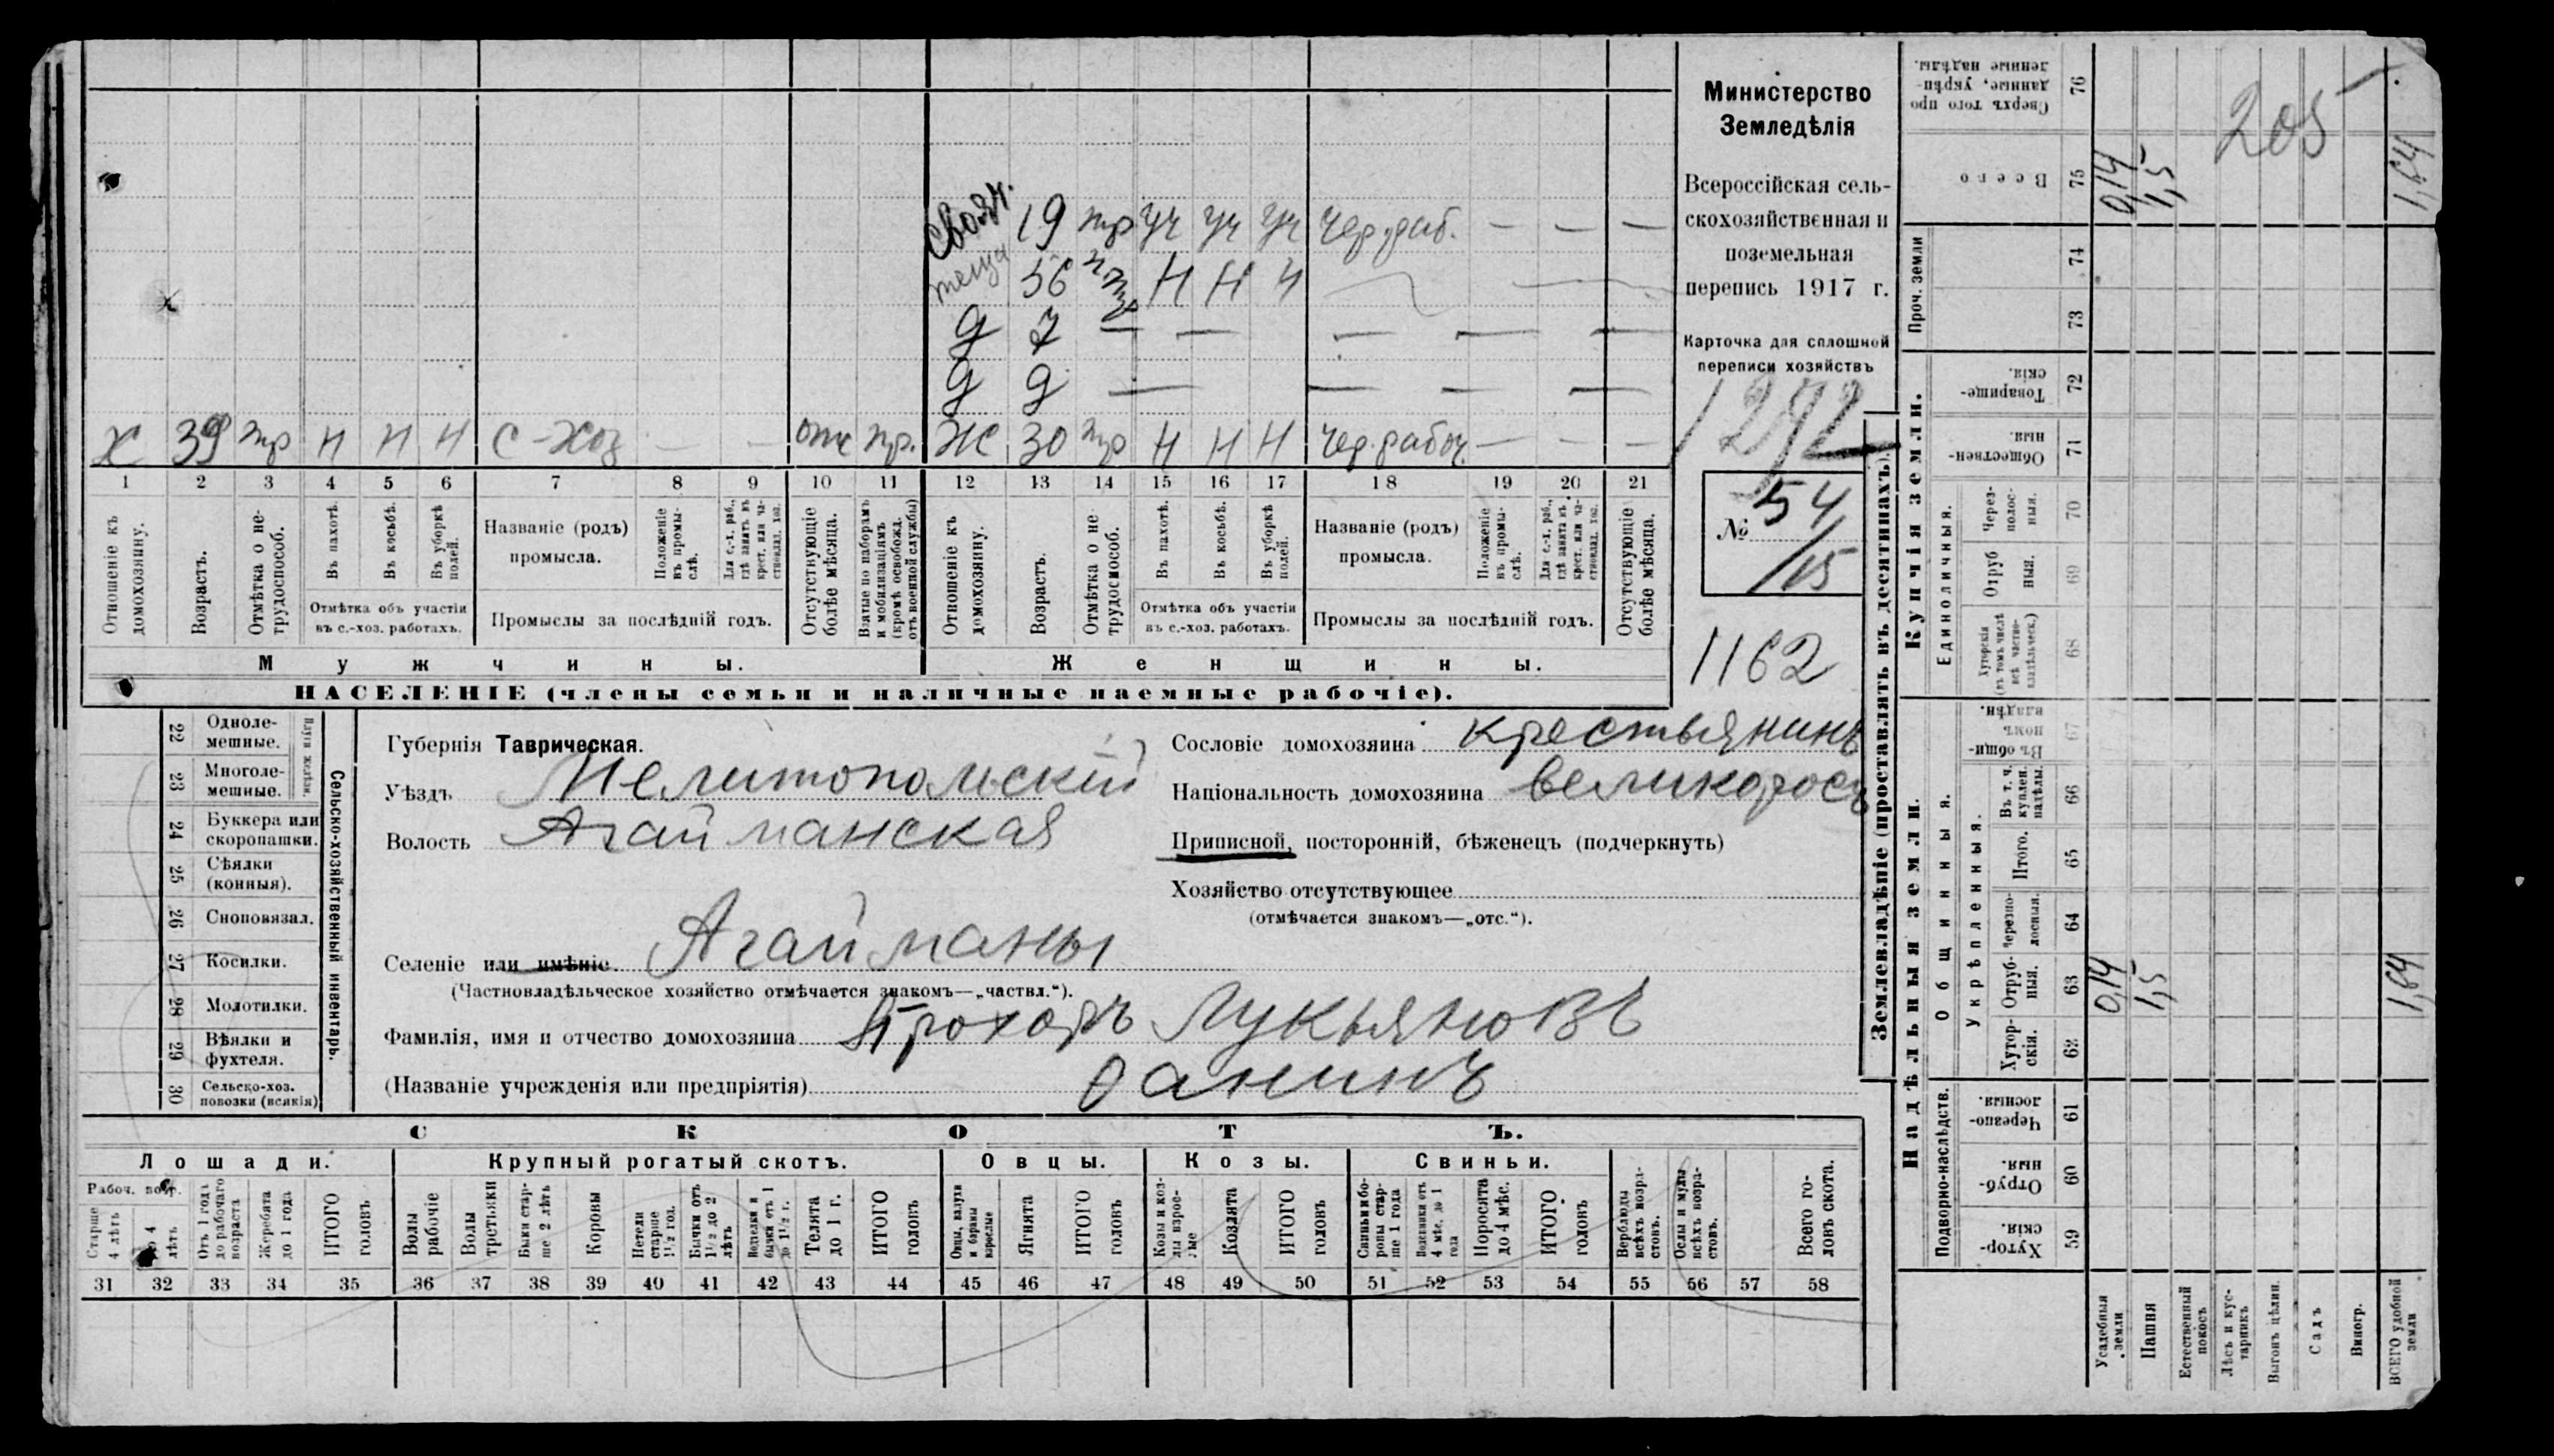 свояч. 19 тр уч уч уч чер. раб. — — —
теща 56 Н Н Н — —
д 7 — — — — —
д 9 — — — —
х 39 тр н н н с-хоз — — отс пр. ж 30 тр Н Н Н чер. рабоч. — — —
1 2 3 4 5 6 7 8 9 10 11 12 13 14 15 16 17 18 19 20 21
Отношеніе къ домохозяину.
Возрастъ.
Отмѣтка о нетрудоспособ.
Въ пахотѣ.
Въ косьбѣ.
Въ уборкѣ полей.
Отмѣтка объ участіи въ с.-хоз. работахъ.
Названіе (родъ) промысла.
Положеніе въ промыслѣ.
Для с.-х. раб., гдѣ занятъ въ крест. или частновлад. хоз.
Промыслы за послѣдній годъ.
Отсутствующіе болѣе мѣсяца.
Взятые по наборамъ и мобилизаціямъ (кромѣ освобожд. отъ военной службы)
Отношеніе къ домохозяину.
Возрастъ.
Отмѣтка о нетрудоспособ.
Въ пахотѣ.
Въ косьбѣ.
Въ уборкѣ полей.
Отмѣтка объ участіи въ с.-хоз. работахъ.
Названіе (родъ) промысла.
Положеніе въ промыслѣ.
Для с.-х. раб., гдѣ занятъ въ крест. или частновлад. хоз.
Промыслы за послѣдній годъ.
Отсутствующіе болѣе мѣсяца.
Мужчины.
Женщины.
НАСЕЛЕНІЕ (члены семьи и наличные наемные рабочіе).
Министерство
Земледѣлія
Всероссійская сель-
скохозяйственная и
поземельная
перепись 1917 г.
Карточка для сплошной
переписи хозяйствъ
1292
№ 54
/15
1162
22 Одноле-
мешные.
23 Многоле-
мешные.
Плуги желѣзн.
24 Буккера или
скоропашки.
25 Сѣялки
(конныя).
26 Сноповязал.
27 Косилки.
28 Молотилки.
29 Вѣялки и
фухтеля.
30 Сельско-хоз.
повозки (всякія)
Сельско-хозяйственный инвентарь.
Губернія Таврическая.
Уѣздъ Мелитопольскій
Волость Агайманская
Селеніе или имѣніе. Агайманы
(Частновладѣльческое хозяйство отмѣчается знакомъ—„частвл.“).
Фамилія, имя и отчество домохозяина Прохоръ Лукьяновъ
(Названіе учрежденія или предпріятія) Ѳанинъ
Сословіе домохозяина крестьянинъ
Національность домохозяина великоросъ
Приписной, посторонній, бѣженецъ (подчеркнуть)
Хозяйство отсутствующее
(отмѣчается знакомъ—„отс.“).
СКОТЪ.
Лошади. Крупный рогатый скотъ. Овцы. Козы. Свиньи.
Рабоч. возр.
Старше 4 лѣтъ
До 4 лѣтъ
Отъ 1 года до рабочаго возраста
Жеребята до 1 года
ИТОГО головъ
Волы рабочіе
Волы третьяки
Быки старше 2 лѣтъ
Коровы
Нетели старше 1½ год.
Бычки отъ 1½ до 2 лѣтъ
Телки и бычки отъ 1 до 1½ г.
Телята до 1 г.
ИТОГО головъ
Овцы, валухи и бараны взрослые
Ягнята
ИТОГО головъ
Козы и козлы взрослые
Козлята
ИТОГО головъ
Свиньи и боровы старше 1 года
Подсвинки отъ 4 мѣс. до 1 года
Поросята до 4 мѣс.
ИТОГО головъ
Верблюды всѣхъ возрастовъ.
Ослы и мулы всѣхъ возрастовъ.
Всего головъ скота.
31 32 33 34 35 36 37 38 39 40 41 42 43 44 45 46 47 48 49 50 51 52 53 54 55 56 57 58
Землевладѣніе (проставлять въ десятинахъ).
Купчія земли.
Надѣльныя земли.
Сверхъ того проданные, укрѣпленные надѣлы. 76
Всего 75 0,14 1,5 1,64
205
Проч. земли 74
73
Товарищескія. 72
Общественныя. 71
Единоличныя.
Черезполосныя. 70
Отрубныя. 69
Хуторскія (въ томъ числѣ всѣ частновладѣльческ.) 68
Общинныя.
Въ общинномъ владѣн. 67
Укрѣпленныя.
Въ т. ч. куплен. надѣлы. 66
Итого. 65
Черезполосныя. 64
Отрубныя. 63 0,14 1,5 1,64
Хуторскія. 62
Подворно-наслѣдств.
Черезполосныя. 61
Отрубныя. 60
Хуторскія. 59
Усадебныя земли
Пашня
Естественный покосъ
Лѣсъ и кустарникъ
Выгонъ цѣлин.
Садъ
Виногр.
ВСЕГО удобной земли